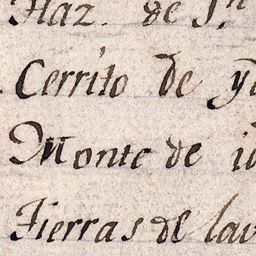 Haz. de Sn
Cerrito de yd
Monte de id
Tierras de lav